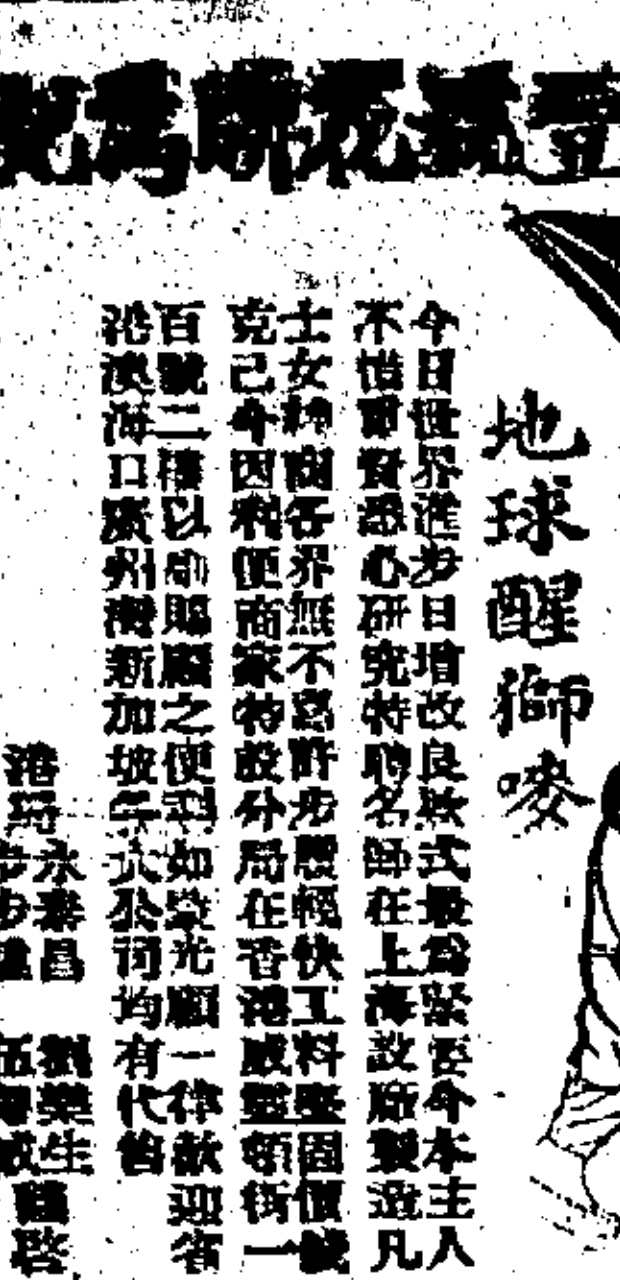 花 爲
地球醒獅嘜
今日世界進步日增改良款式最爲緊要今本主人
不惜重資悉心研究特聘名師在上海設廠製造凡
士女紳商各界無不許步履輕快工料堅固價錢
克己今因利便商家特設分局在香港威靈頓街一
百號二樓以前賜顧之便利如蒙光顧一律歡迎省
港澳海口廣州灣新加坡等大公司均有代售
港
永泰昌 劉樂生
謹啓